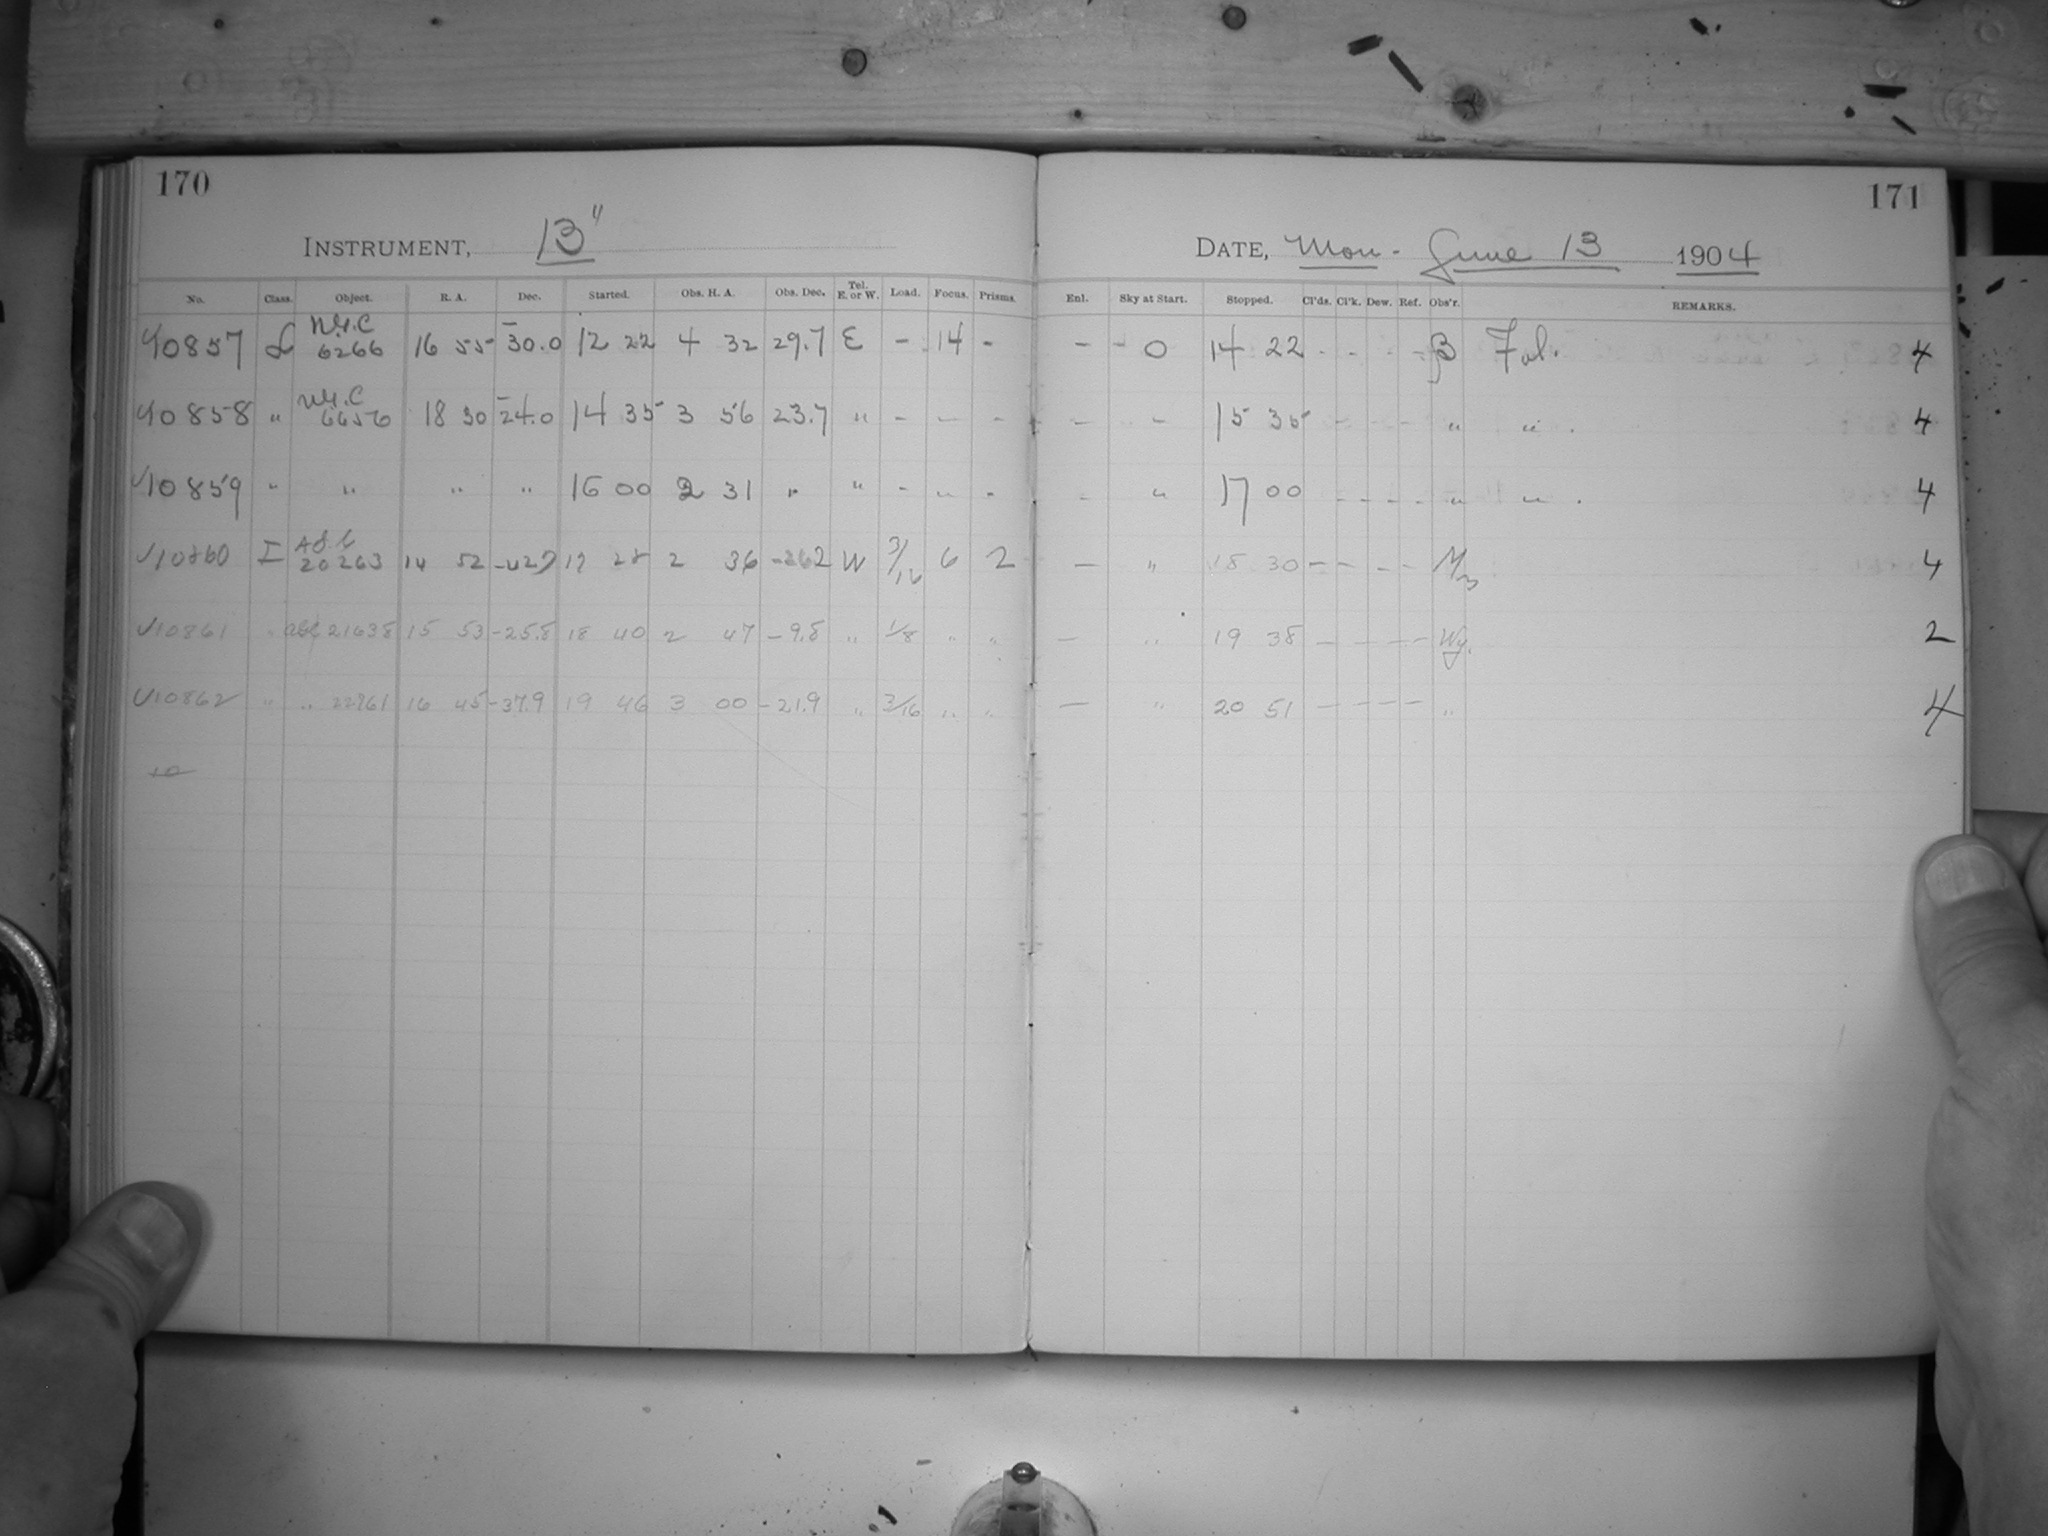 170
INSTRUMENT, 13"
No. Class. Object. R. A. Dec. Started. Obs. H. A. Obs. Dec. Tel. E. or W. Load. Focus. Prisms.
10857 N.G.C 6266 16 55 -30.0 12 22 4 32 29.7 E - 14 -
10858 " N.G.C 6656 18 30 -24.0 14 35 3 56 23.7 " - - -
10859 " " " " 16 00 2 31 " " - " -
10860 I AGC 20263 14 52 17 28 2 36 -26.2 W 3/16 6 2
10861 " AGC 21638 15 53 -25.8 18 40 2 47 -9.8 " 1/8 " "
10862 " " 16 45 -37.9 19 46 3 00 -21.9 " 3/16 " "
10
171
DATE, Mon - June 13 1904
Enl. Sky at Start. Stopped. Cl'ds. Cl'k. Dew. Ref. Obs'r. REMARKS.
- - 0 14 22 - - - - β 4
- - 15 35 - - - - " " . 4
- " 17 00 - - - - " " . 4
- " 18 30 - - - - 4
- " 19 38 - - - - Wy. 2
- " 20 51 - - - - " 4